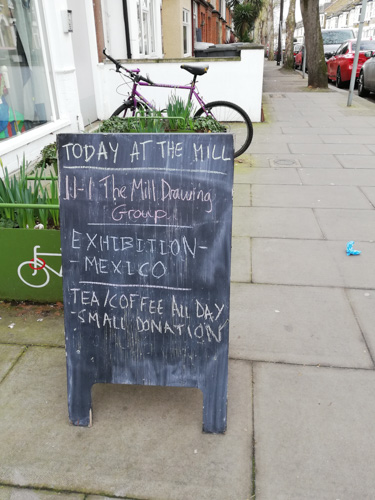 TODAY AT THE MILL
11-1 The Mill Drawing
Group
EXHIBITION-
- MEXICO
TEA/COFFEE All DAY
-SMALL DONATION